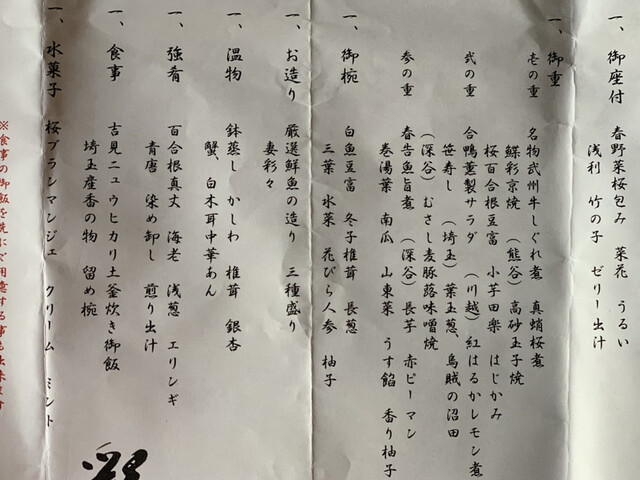 一、御座付 春野菜桜包み 菜花 うるい
浅利 竹の子 ゼリー出汁
一、御重
壱の重 名物武州牛しぐれ煮 真蛸桜煮
鰈彩京焼 (熊谷)高砂玉子焼
桜百合根豆富 小芋田楽 はじかみ
弐の重 合鴨薫製サラダ (川越)紅はるかレモン煮
笹寿し (埼玉)葉玉葱、烏賊の沼田
(深谷)むさし麦豚蕗味噌焼
参の重 春告魚旨煮 (深谷)長芋 赤ピーマン
巻湯葉 南瓜 山東菜 うす餡 香り柚子
一、御椀 白魚豆富 冬子椎茸 長葱
三葉 水菜 花びら人参 柚子
一、お造り 厳選鮮魚の造り 三種盛り
妻彩々
一、温物 鉢蒸し かしわ 椎茸 銀杏
蟹、白木耳中華あん
一、強肴 百合根真丈 海老 浅葱 エリンギ
青唐 染め卸し 煎り出汁
一、食事 吉見ニュウヒカリ土釜炊き御飯
埼玉産香の物 留め椀
一、水菓子 桜ブランマンジェ クリーム ミント
※食事の御飯を